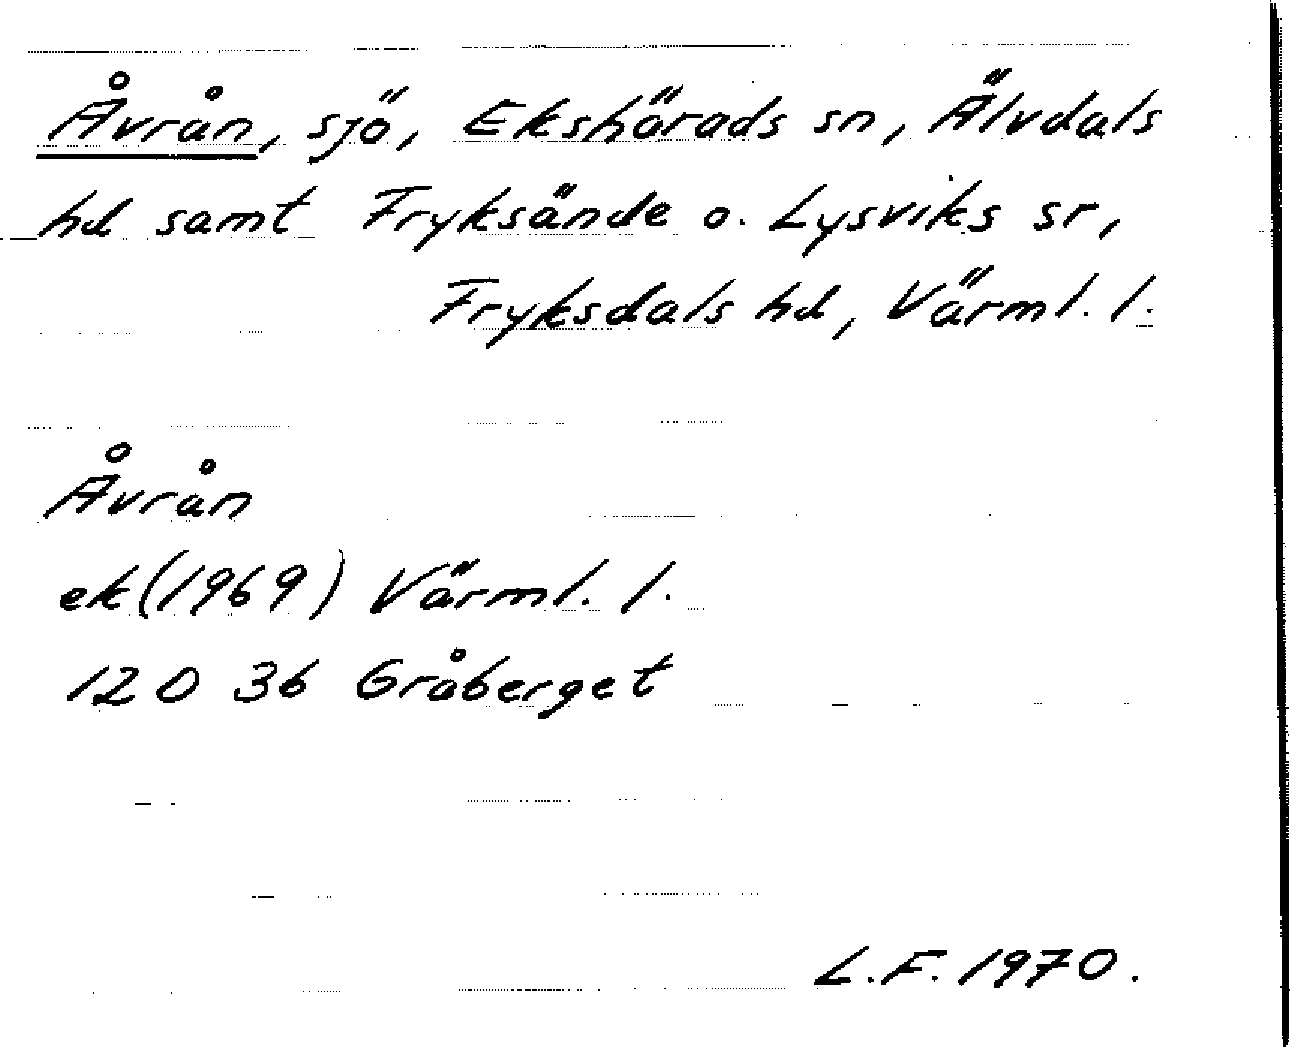 Åvrån, sjö, Ekshärads sn, Älvdals
hd samt Fryksände o. Lysviks sr,
Fryksdals hd, Värml. l.
Åvrån
ek (1969) Värml. l.
12 D 3b Gråberget
L.F. 1970.